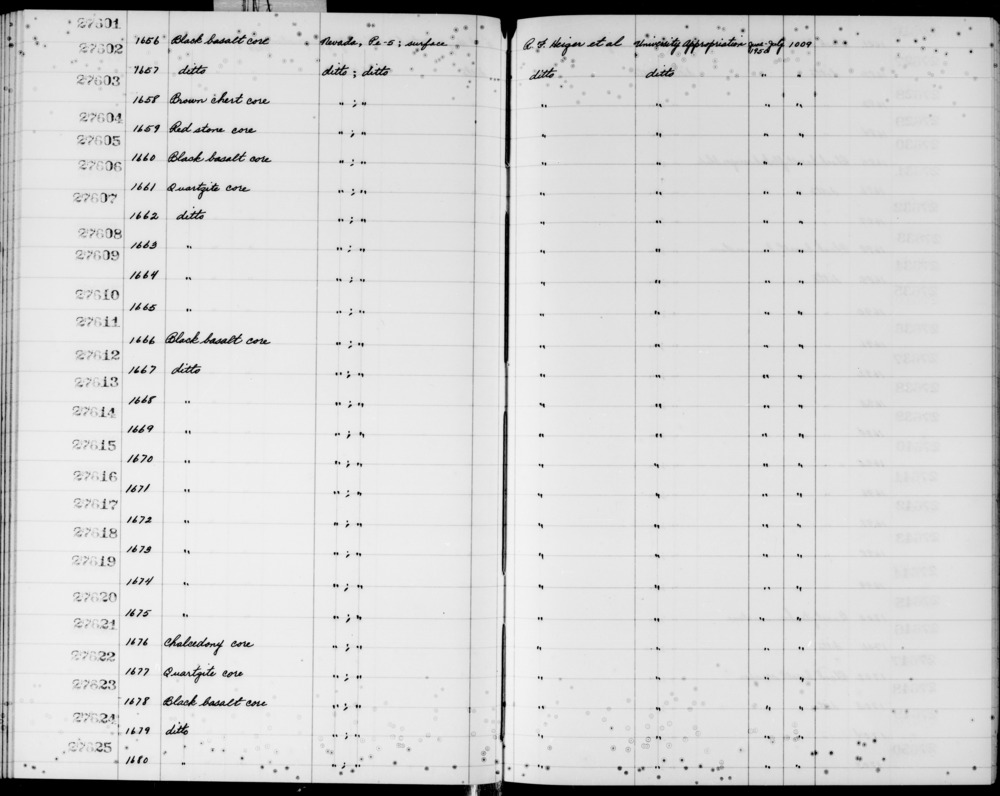 27601
1656 Black basalt core Nevada, Pe-5; surface R. F. Heizer et al University Appropriation June-July 1950 1009
27602
1657 ditto ditto ; ditto ditto ditto
27603
1658 Brown chert core " ; " " " " "
27604
1659 Red stone core " ; " " " " "
27605
1660 Black basalt core " ; " " " " "
27606
1661 Quartzite core " ; " " " " "
27607
1662 ditto " ; " " " " "
27608
1663 " " ; " " " " "
27609
1664 " " ; " " " " "
27610
1665 " " ; " " " " "
27611
1666 Black basalt core " ; " " " " "
27612
1667 ditto " ; " " " " "
27613
1668 " " ; " " " " "
27614
1669 " " ; " " " " "
27615
1670 " " ; " " " " "
27616
1671 " " ; " " " " "
27617
1672 " " ; " " " " "
27618
1673 " " ; " " " " "
27619
1674 " " ; " " " " "
27620
1675 " " ; " " " " "
27621
1676 Chalcedony core " ; " " " " "
27622
1677 Quartzite core " ; " " " " "
27623
1678 Black basalt core " ; " " " " "
27624
1679 ditto " ; " " " " "
27625
1680 " " ; " " " " "